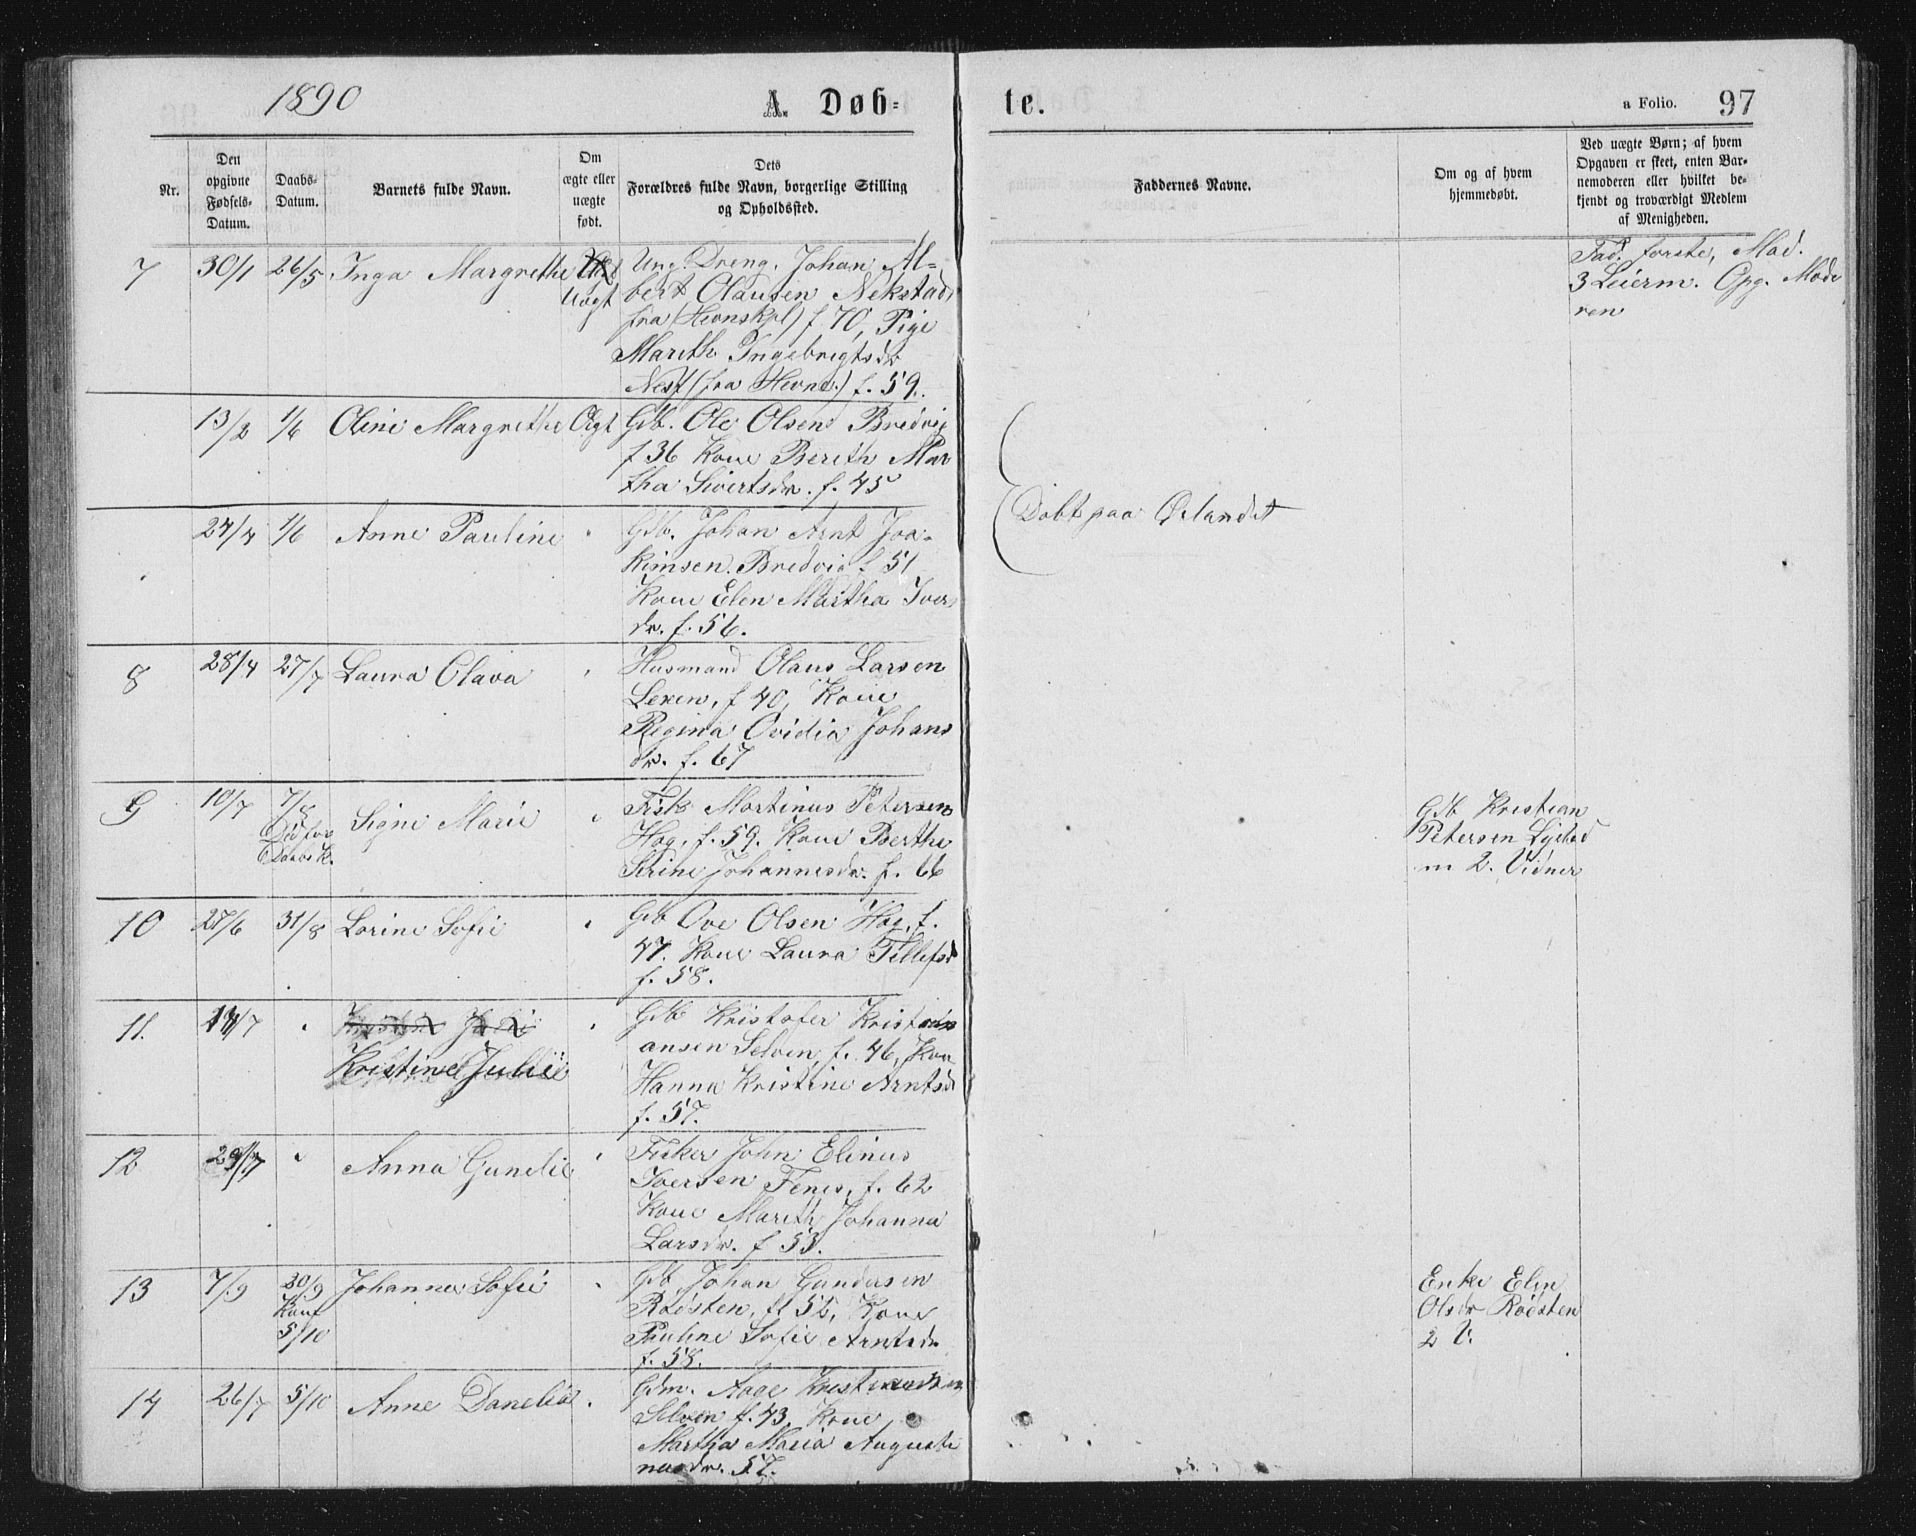 1890
A. Døb=
te.
a Folio. 97
Nr.
Den
opgivne
Fødsels-
Datum.
Daabs-
Datum.
Barnets fulde Navn.
Om
ægte eller
uægte
født.
Dets
Forældres fulde Navn, borgerlige Stilling
og Opholdssted.
Faddernes Navne.
Om og af hvem
hjemmedøbt.
Ved uægte Børn; af hvem
Opgaven er skeet, enten Bar-
nemoderen eller hvilket be-
kjendt og troværdigt Medlem
af Menigheden.
7 30/1 26/5 Inga Margrethe Uægt Ung. Dreng. Johan Al-
bert Olausen Nekstad,
fra (Hevnskpl) f. 70, Pige
Mareth Ingebrigtsdr
Nesf (fra Hevne.) f. 59.
Fad. forste, Mod.
3 Leierm. Opg. Mode
ren
13/2 1/6 Oline Margrethe Ægt Gdb. Ole Olsen Bredvig
f 36 Kone Bereth Mar
tha Sivertsdr. f. 45
27/4 1/6 Anne Pauline " Gdb. Johan Arnt Joa-
kimsen Bredvig f 51
Kone Elen Martha Iver
dr. f. 56.
Døbt paa Ørlandet
8 28/4 27/7 Laura Olava " Husmand Olaus Larsen
Lexen, f 40, Kone
Regina Ovidia Johans
dr. f. 67
9 10/7 7/8 Signe Marie " Fisk Martinus Petersen
Død for
Daabsk.
Hog, f. 59. Kone Berthe
Serine Johannesdr. f. 66
Gdb Kristian
Petersen Lystad
m 2. Vidner
10 27/6 31/8 Lorine Sofie " Gdb Ove Olsen Hog, f.
47. Kone Laura Tellefsd
f. 58.
11. 17/7 " Kristine Julie " Gdb Kristofer Kristi
ansen Selven, f. 46, Kone
Hanna Kristine Arntsd
f. 57.
12 29/7 " Anna Gunelie " Fisker John Elinus
Iversen Fenes, f. 62
Kone Mareth Johanna
Larsdr. f 53.
13 7/9 30/9 Johanna Sofie " Gdb Johan Gundersen
Konf
5/10
Roosten, f. 56, Kone
Pauline Sofie Arntsdr
f. 58.
Enke Elen
Olsdr Roosten
2 V.
14 26/7 5/10 Anne Danelia " Gdm. Aage Kristiansen
Selven f. 43, Kone
Martha Maria Auguste
nusdr. 57.